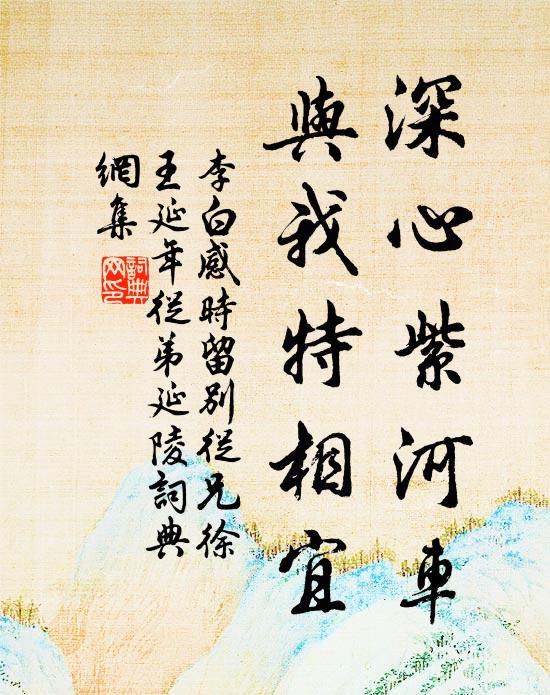 深心紫河車
與我特相宜
李白感時留別從兄徐
王延年從弟延陵詞典
網集
詞典網印